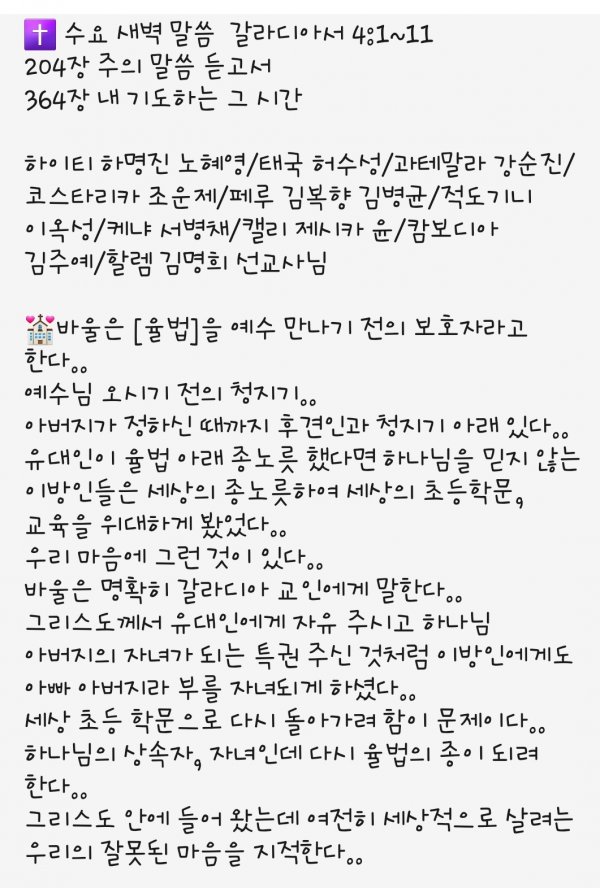 ✝️ 수요 새벽 말씀 갈라디아서 4:1~11
204장 주의 말씀 듣고서
364장 내 기도하는 그 시간
하이티 하명진 노혜영/태국 허수성/과테말라 강순진/
코스타리카 조운제/페루 김복향 김병균/적도기니
이옥성/케냐 서병채/캘리 제시카 윤/캄보디아
김주예/할렘 김명희 선교사님
💒바울은 [율법]을 예수 만나기 전의 보호자라고
한다..
예수님 오시기 전의 청지기..
아버지가 정하신 때까지 후견인과 청지기 아래 있다..
유대인이 율법 아래 종노릇 했다면 하나님을 믿지 않는
이방인들은 세상의 종노릇하여 세상의 초등학문,
교육을 위대하게 봤었다..
우리 마음에 그런 것이 있다..
바울은 명확히 갈라디아 교인에게 말한다..
그리스도께서 유대인에게 자유 주시고 하나님
아버지의 자녀가 되는 특권 주신 것처럼 이방인에게도
아빠 아버지라 부를 자녀되게 하셨다..
세상 초등 학문으로 다시 돌아가려 함이 문제이다..
하나님의 상속자, 자녀인데 다시 율법의 종이 되려
한다..
그리스도 안에 들어 왔는데 여전히 세상적으로 살려는
우리의 잘못된 마음을 지적한다..